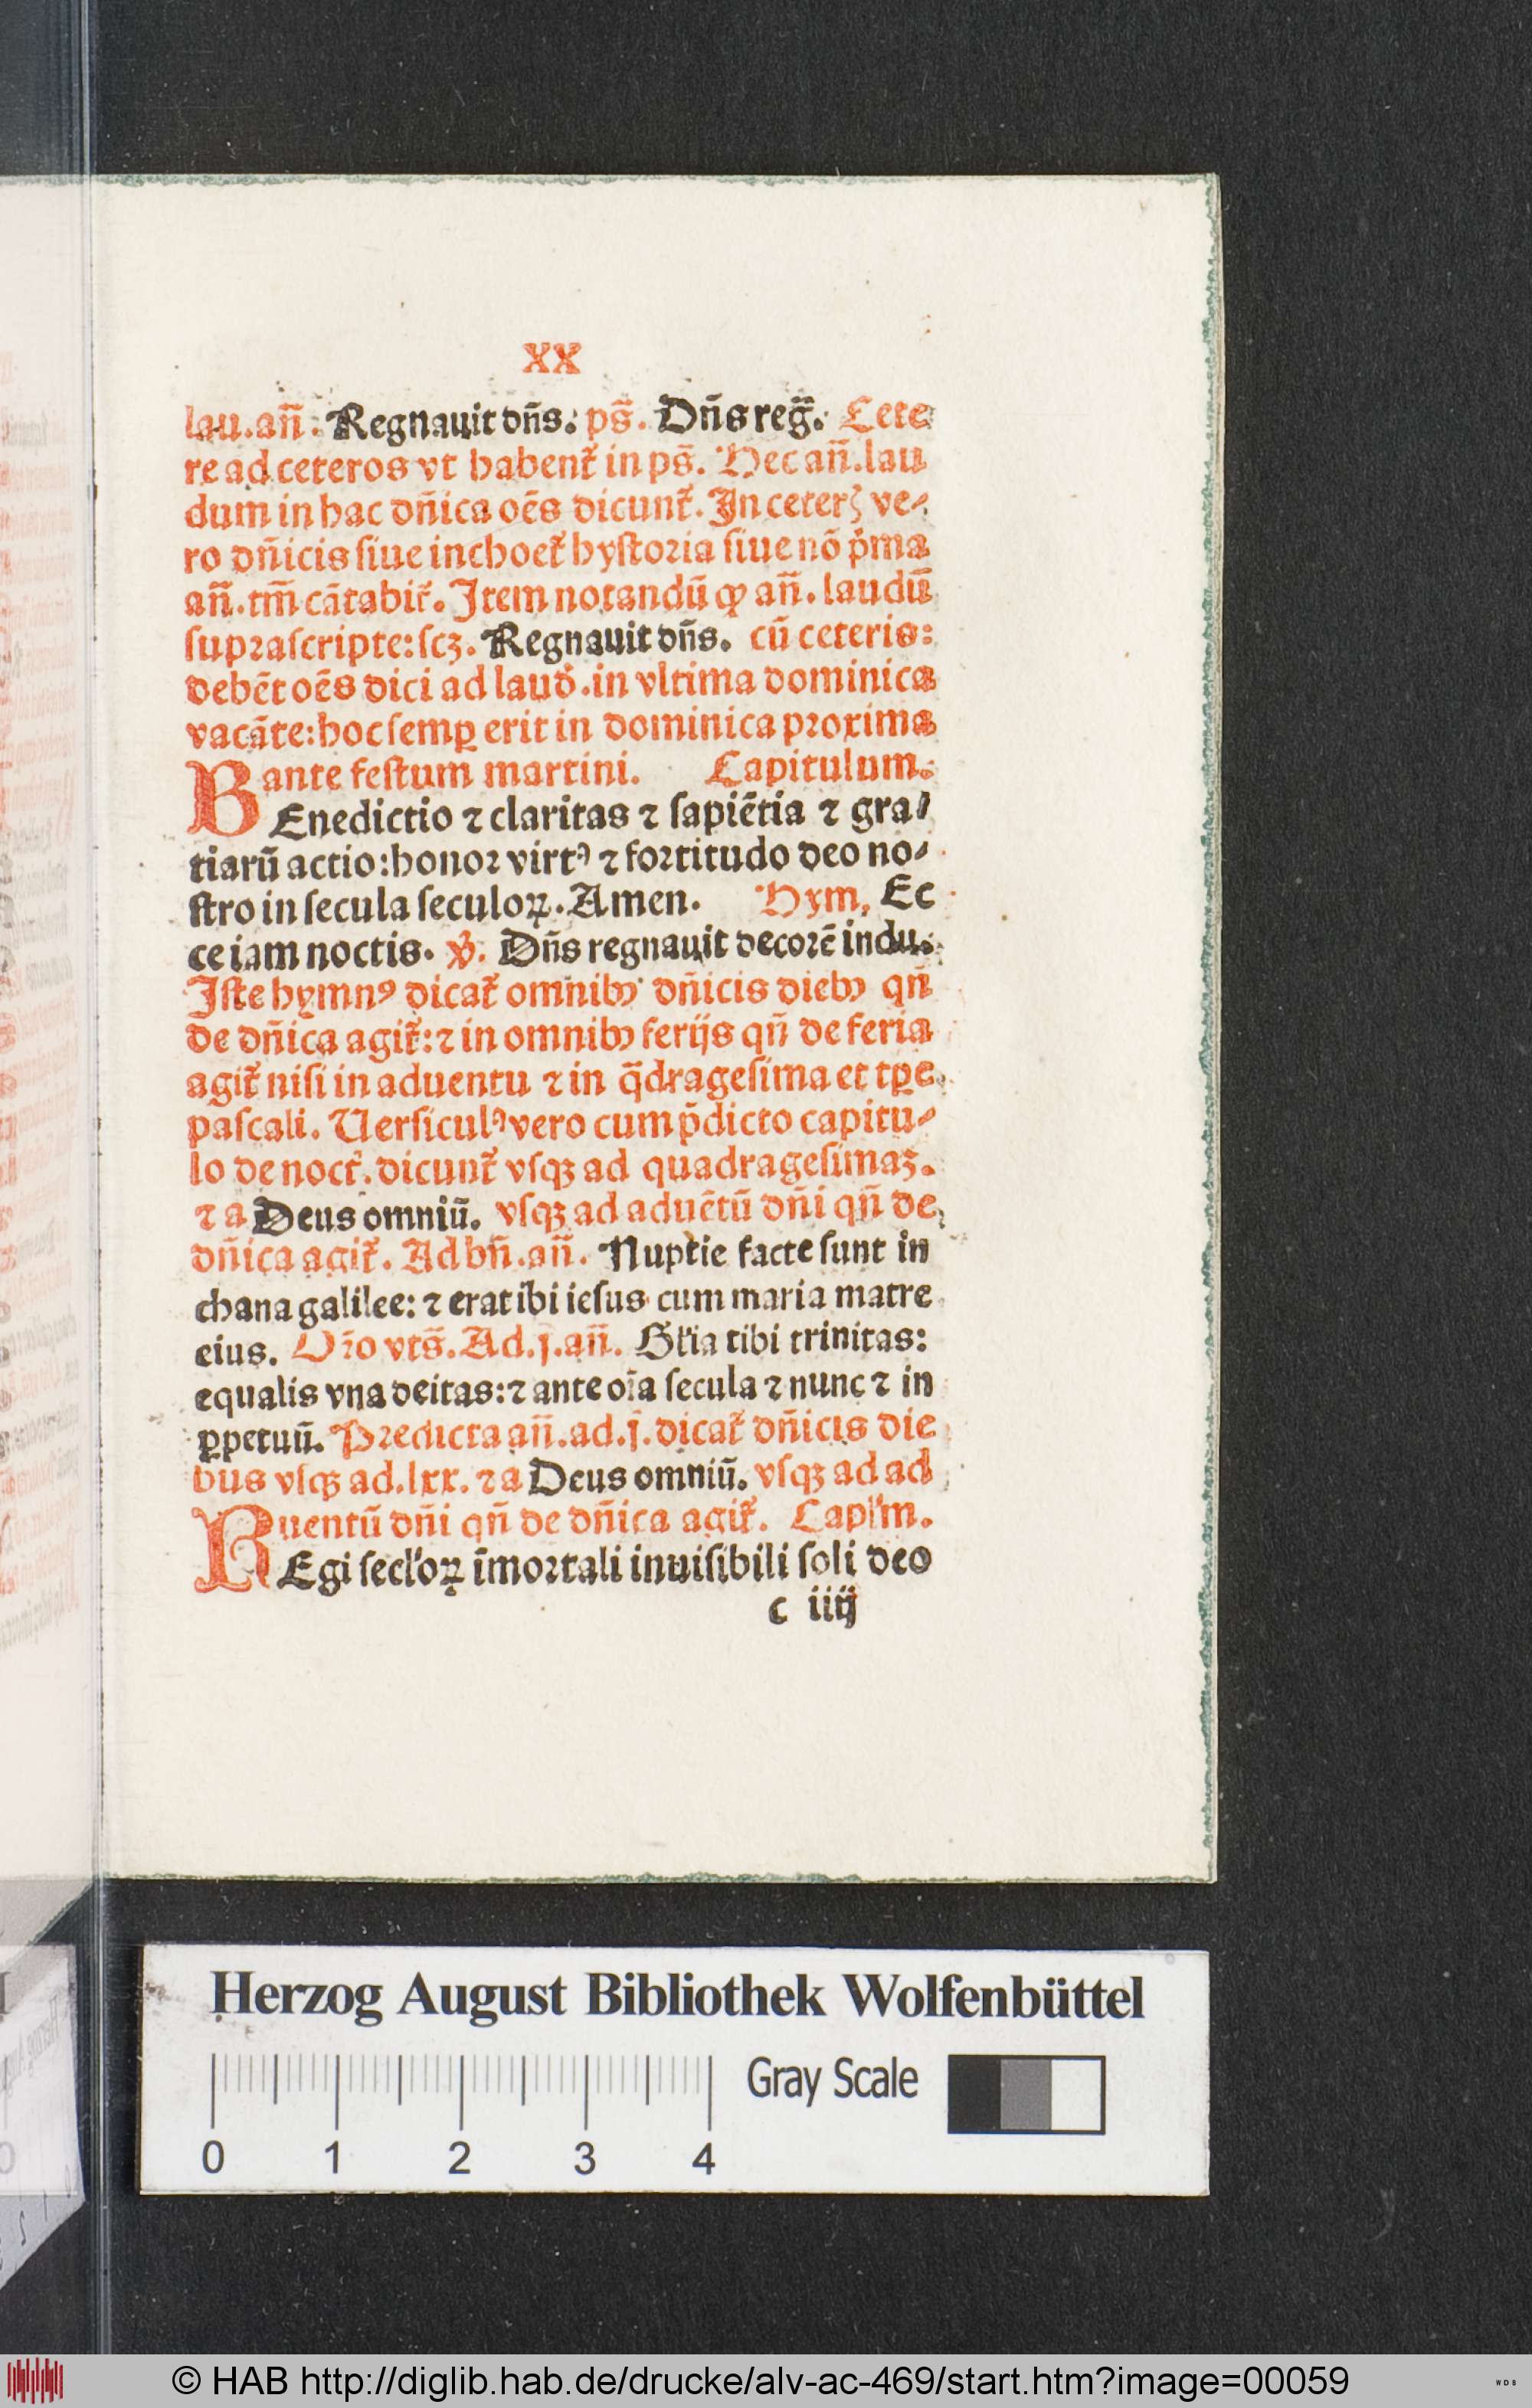 XX
lau.an̄. Regnauit dn̄s. ps̄. Dn̄s reg̃. Cete
re ad ceteros vt habent᷑ in ps̄. Hec an̄.lau
dum in hac dn̄ica oēs dicunt᷑. In ceterꝭ ve⸗
ro dn̄icis ſiue inchoet᷑ hyſtoꝛia ſiue nō pͥma
an̄.tm̄ cātabit᷑. Item notandū ꝙ an̄.laudū
ſupꝛaſcripte:ſcꝫ. Regnauit dn̄s. cū ceteris:
debēt oēs dici ad laud̾.in vltima dominica
vacāte:hoc ſemꝑ erit in dominica pꝛoxima
ante feſtum martini. Capitulum.
BEnedictio ⁊ claritas ⁊ ſapiētia ⁊ gra⸗
tiarū actio:honoꝛ virtꝰ ⁊ foꝛtitudo deo no⸗
ſtro in ſecula ſeculoꝝ. Amen. Hym, Ec
ce iam noctis. ℣. Dn̄s regnauit decoꝛē indu.
Iſte hymnꝰ dicat᷑ omnibꝰ dn̄icis diebꝰ qn̄
de dn̄ica agit᷑:⁊ in omnibꝰ ferijs qn̄ de feria
agit᷑ niſi in aduentu ⁊ in q̈drageſima et tꝑe
paſcali. Uerſiculꝰ vero cum p̄dicto capitu⸗
lo de noct᷑. dicunt᷑ vſqꝫ ad quadrageſimaꝫ.
⁊ a Deus omniū. vſqꝫ ad aduētū dn̄i qn̄ de
dn̄ica agit᷑. Ad bn̄.an̄. Nuptie facte ſunt in
chana galilee: ⁊ erat ibi ieſus cum maria matre
eius. Oꝛ̄o vts̄. Ad.j.an̄. Gl̄ia tibi trinitas:
equalis vna deitas:⁊ ante oīa ſecula ⁊ nunc ⁊ in
ꝑpetuū. Pꝛedicta an̄.ad.j.dicat᷑ dn̄icis die
bus vſqꝫ ad.lxx. ⁊ a Deus omniū. vſqꝫ ad ad
uentū dn̄i qn̄ de dn̄ica agit᷑. Capl̄m.
REgi ſecl̄oꝝ īmoꝛtali inuiſibili ſoli deo
c iiij
Herzog August Bibliothek Wolfenbüttel
Gray Scale
0 1 2 3 4
© HAB http://diglib.hab.de/drucke/alv-ac-469/start.htm?image=00059